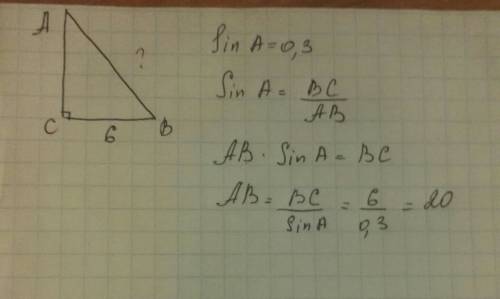 A
?
C
6
B
Sin A = 0,3
Sin A = BC/AB
AB · Sin A = BC
AB = BC/Sin A = 6/0,3 = 20